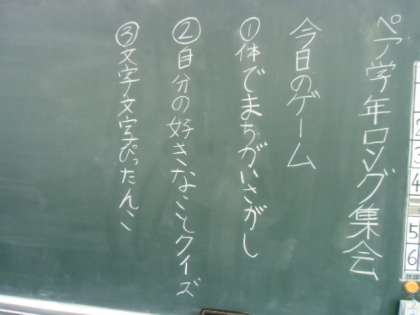 ペア学年ロング集会
今日のゲーム
①体でまちがいさがし
②自分の好きなことクイズ
③文字文字ぴったんこ
2
3
4
5
6